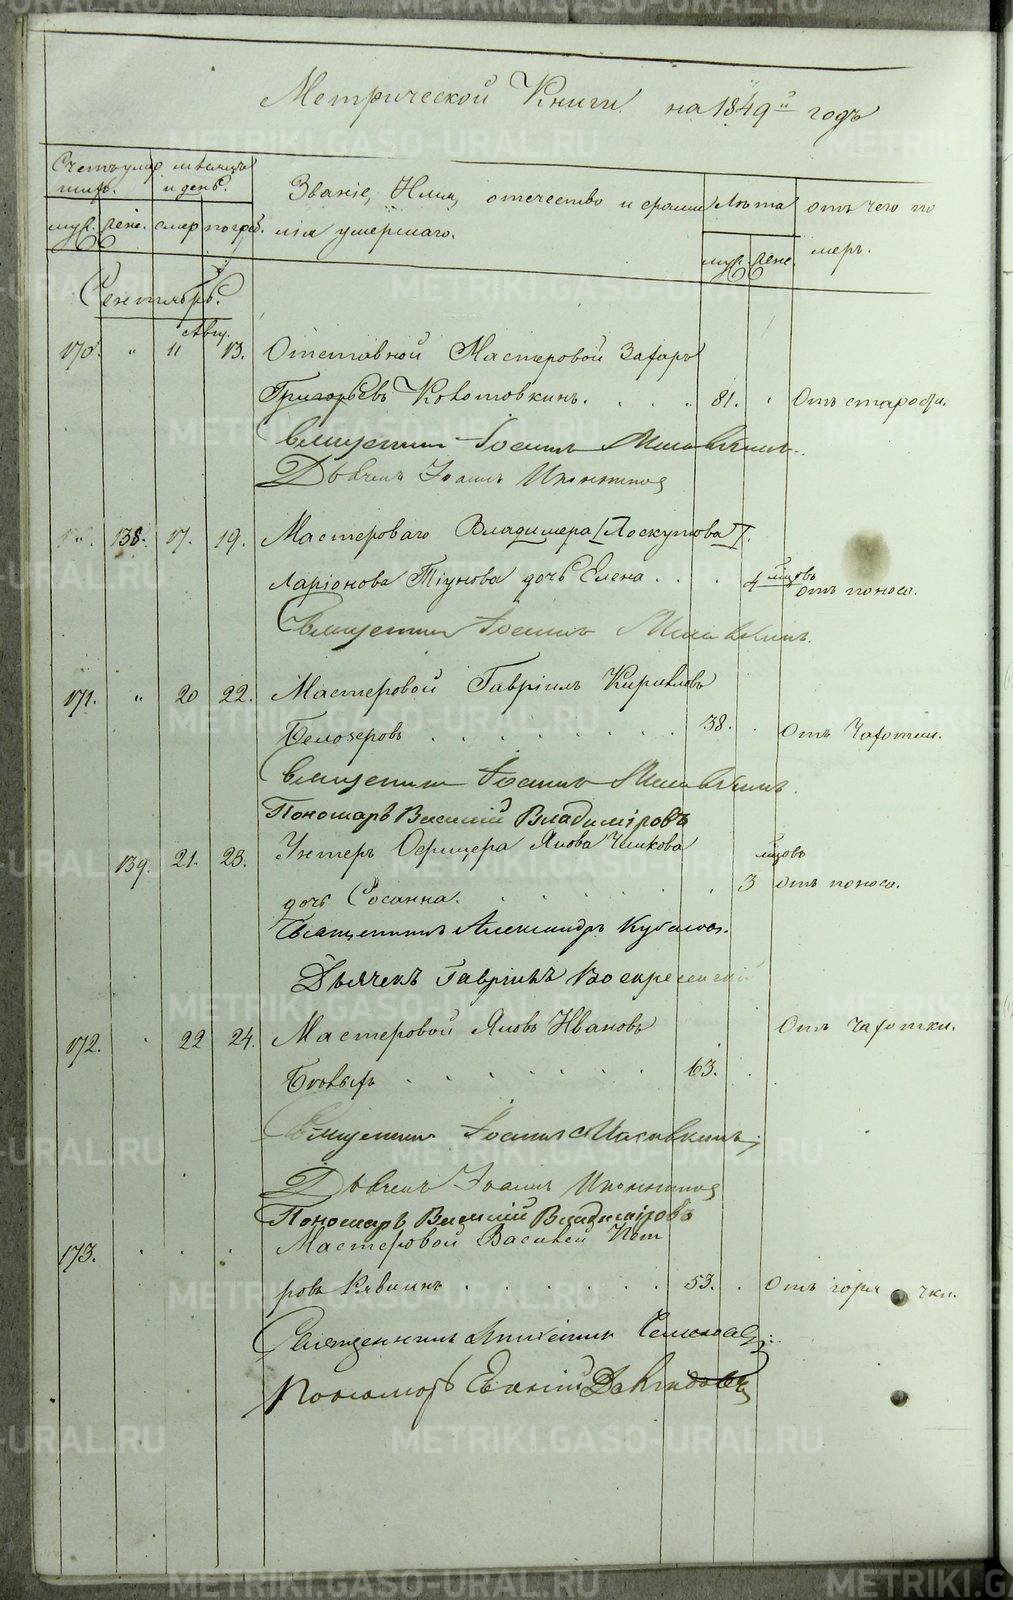 Метрической Книги на 1849й годъ
Счетъ умер мѣсяцъ
ших. и день.
Званіе, Имя, отечество и фами
лія умершаго.
Лѣта
отъ чего по
меръ.
муж. жен. смер погреб.
муж. жен.
Сентябрь.
Авгу.
170. " 11 13. Отставной Мастеровой Захаръ
Григорьевъ 81. Отъ старости.
Священникъ Іоаннъ
Дьячекъ Іоаннъ
138. 17. 19. Мастероваго Владимера [Лоскутова].
Ларіонова Тіунова дочь Елена 4 мѣсяцовъ отъ поноса.
Священникъ Іоаннъ
171. " 20 22. Мастеровой Гавріилъ Кириловъ
Белозеровъ 38. Отъ Чахотки.
Священникъ Іоаннъ
Пономарь Василій Владиміровъ
139. 21. 23. Унтеръ Офицера Якова
дочь Сосанна. 3 мѣсяцовъ отъ поноса.
Священникъ Александръ
Дьячекъ Гавріилъ Воскресенскій
172. 22 24. Мастеровой Яковъ Ивановъ
63. Отъ Чахотки.
Священникъ Іоаннъ
Дьячекъ Іоаннъ
Пономарь Василій Владиміровъ
173. Мастеровой Василей Пет
ровъ 53. Отъ горячки.
Священникъ
Пономарь Евгеній Давыдовъ
METRIKI.GASO-URAL.RU